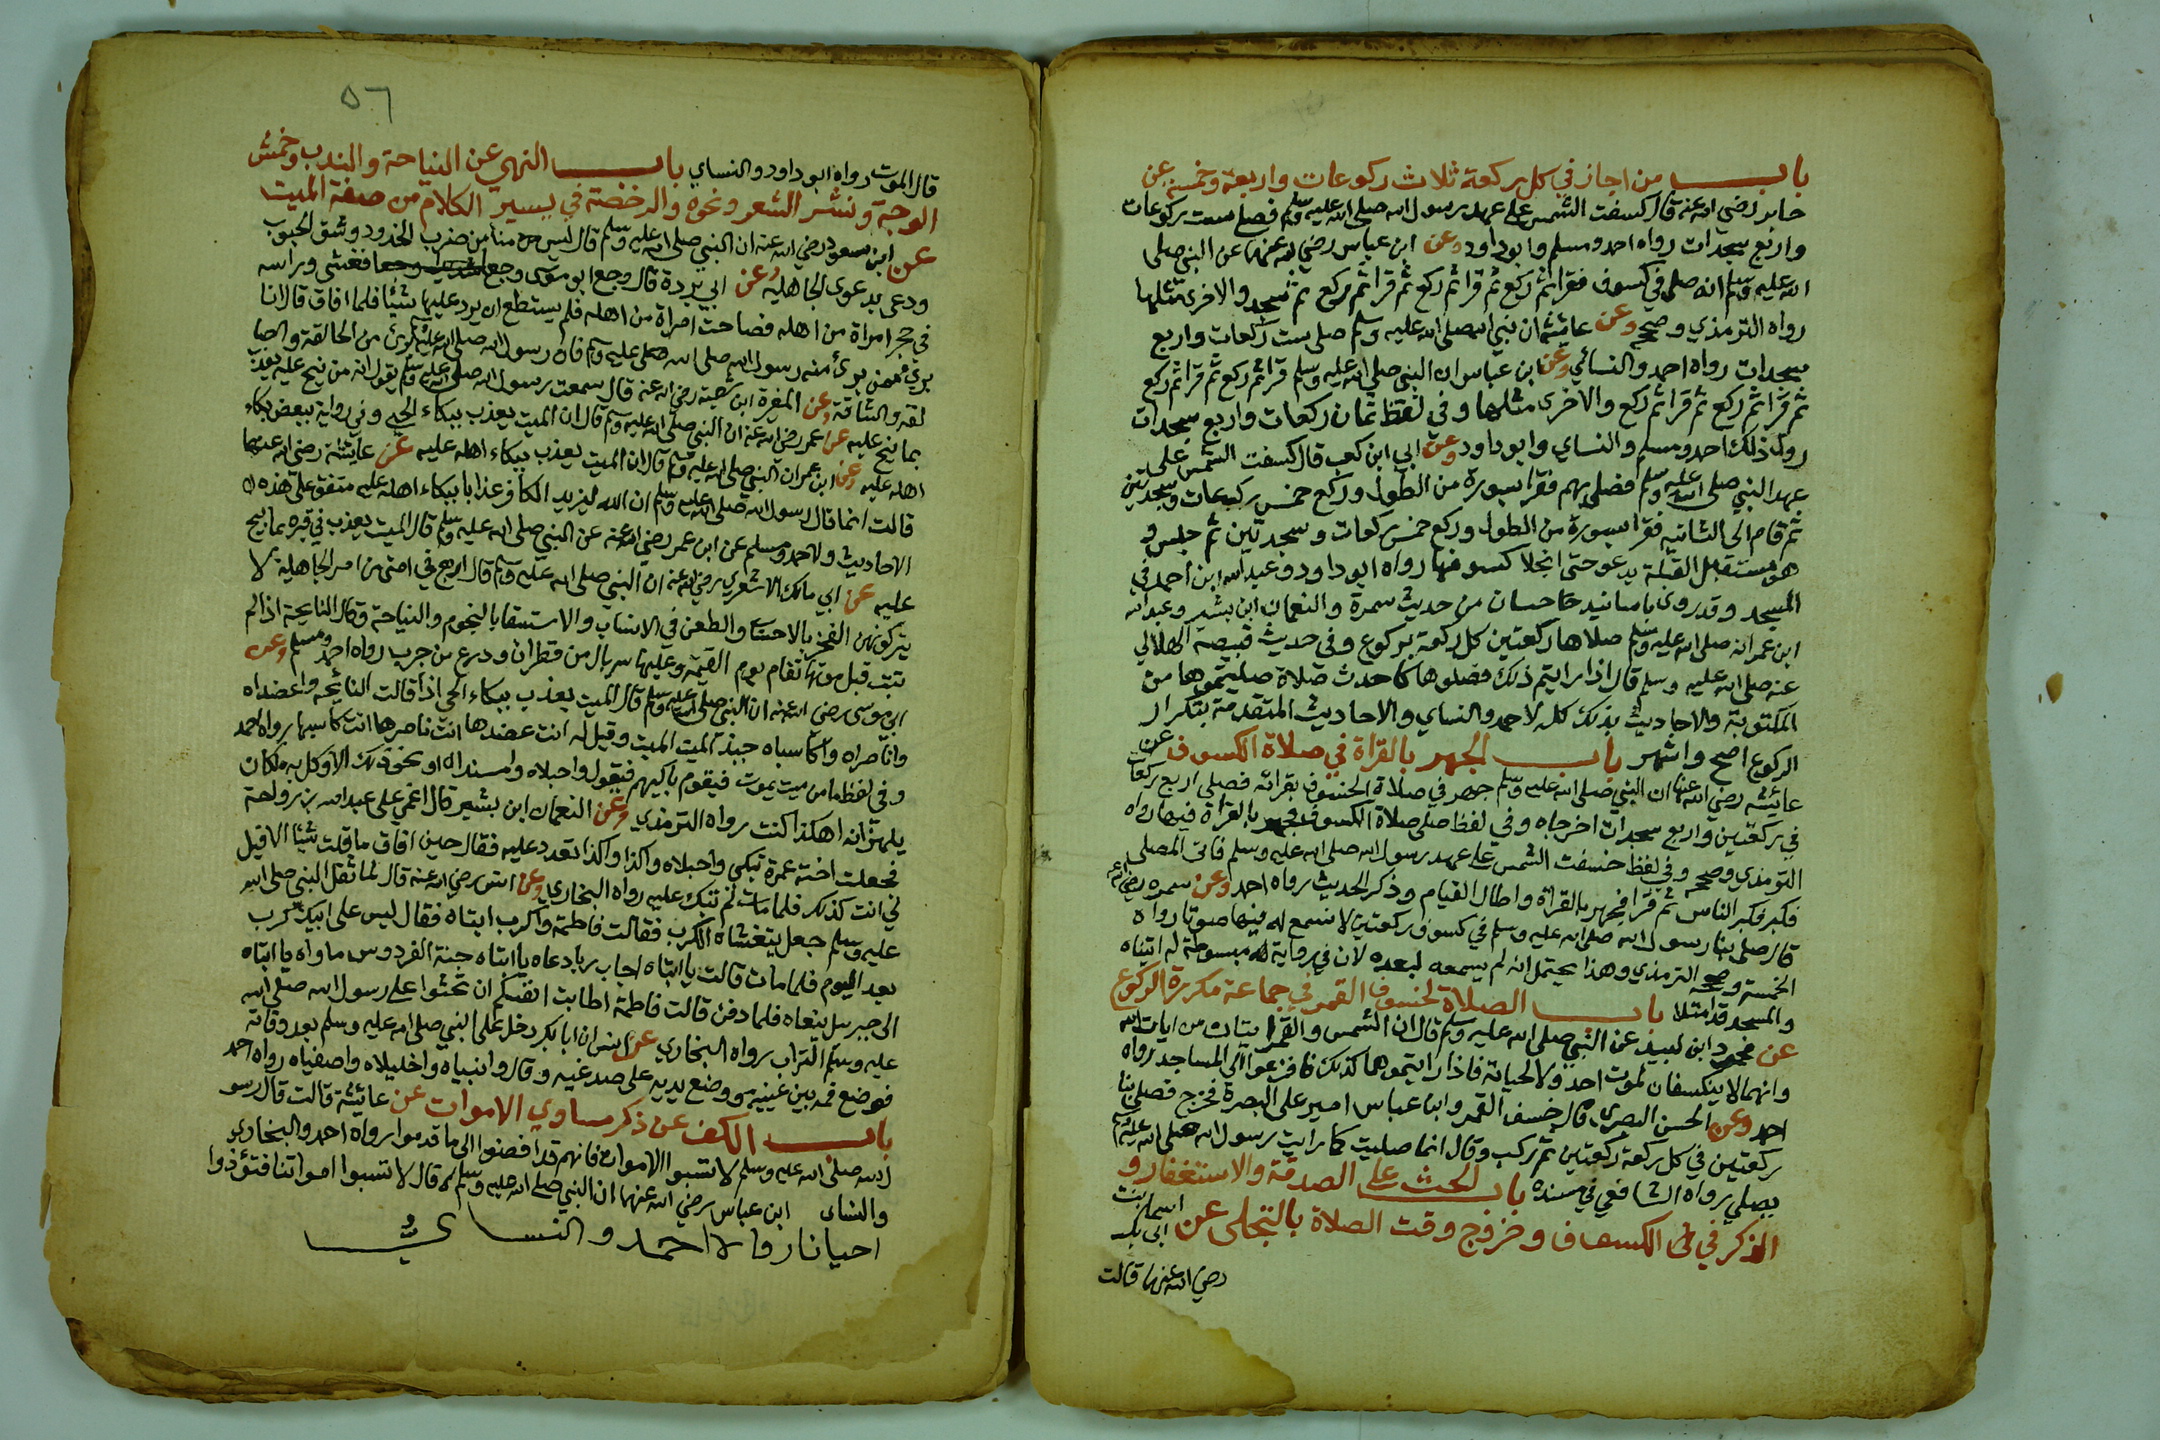 باب من اجاز في كل ركعة ثلاث ركوعات واربعة وخمسة عن
جابر رضي الله عنه قال كسفت الشمس على عهد رسول الله صلى الله عليه وسلم فصلى ست ركوعات
واربع سجدات رواه احمد ومسلم وابو داود وعن ابن عباس رضي الله عنهما عن النبي صلى
الله عليه وسلم انه صلى في كسوف فقرا ثم ركع ثم قرا ثم ركع ثم قرا ثم ركع ثم سجد والاخرى مثلها
رواه الترمذي وصححه وعن عائشة ان نبي الله صلى الله عليه وسلم صلى ست ركعات واربع
سجدات رواه احمد والنسائي وعن ابن عباس ان النبي صلى الله عليه وسلم قرا ثم ركع ثم قرا ثم ركع
ثم قرا ثم ركع ثم قرا ثم ركع والاخرى مثلها وفي لفظ ثمان ركعات واربع سجدات
روى ذلك احمد ومسلم والنساي وابو داود وعن ابي ابن كعب قال كسفت الشمس على
عهد النبي صلى الله عليه وسلم فصلى بهم فقرا سورة من الطول وركع خمس ركعات وسجدتين
ثم قام الى الثانيه فقرا سورة من الطول وركع خمس ركعات وسجدتين ثم جلس و
هو مستقبل القبلة يدعو حتى انجلا كسوفها رواه ابو داود وعبد الله ابن احمد في
المسجد وقد روي باسانيد حسان من حديث سمرة والنعمان ابن بشير وعبد الله
ابن عمر انه صلى الله عليه وسلم صلاها ركعتين كل ركعة بركوع وفي حديث قبيصة الهلالي
عنه صلى الله عليه وسلم قال اذا رايتم ذلك فصلوها كاحدث صلاة صليتموها من
المكتوبة والاحاديث بذلك كله لاحمد والنساي والاحاديث المتقدمة بتكرار
الركوع اصح واشهر باب الجهر بالقراة في صلاة الكسوف عن
عائشه رضي الله عنها ان النبي صلى الله عليه وسلم جهر في صلاة الخسوف بقرائه فصلى اربع ركعات
في ركعتين واربع سجدات اخرجاه وفي لفظ صلى صلاة الكسوف فجهر بالقراة فيها رواه
الترمذي وصححه وفي لفظ خسفت الشمس على عهد رسول الله صلى الله عليه وسلم فاتى المصلى
فكبر فكبر الناس ثم قرا فجهر بالقراة واطال القيام وذكر الحديث رواه احمد وعن سمره رضي الله عنه
قال صلى بنا رسول الله صلى الله عليه وسلم في كسوف ركعتين لا نسمع له فيها صوتا رواه
الخمسة وصححه الترمذي وهذا يحتمل انه لم يسمعه لبعده لان في رواية له مبسوطة له اتيناه
والمسجد قد امتلا باب الصلاة لخسوف القمر في جماعة مكررة الركوع
عن محمود ابن لبيد عن النبي صلى الله عليه وسلم قال ان الشمس والقمر ايتان من ايات الله
وانهما لا ينكسفان لموت احد ولا لحياته فاذا رايتموهما كذلك فافزعوا الى المساجد رواه
احمد وعن الحسن البصري قال خسف القمر وابن عباس امير على البصرة فخرج فصلى بنا
ركعتين في كل ركعة ركعتين ثم ركب وقال انما صليت كما رايت رسول الله صلى الله عليه وسلم
يصلي رواه الشافعي في مسنده باب الحث على الصدقة والاستغفار و
الذكر في الكسوف وخروج وقت الصلاة بالتجلي عن اسما بنت ابي بكر
رضي الله عنها قالت
٥٦
قال الموت رواه ابو داود والنساي باب النهي عن النياحة والندب وخمش
الوجه ونشر الشعر ونحوه والرخصة في يسير الكلام من صفة الميت
عن ابن مسعود رضي الله عنه ان النبي صلى الله عليه وسلم قال ليس منا من ضرب الخدود وشق الجيوب
ودعى بدعوى الجاهليه وعن ابي بردة قال وجع ابو موسى وجعا فغشي وراسه
في حجر امراة من اهله فصاحت امراة من اهله فلم يستطع ان يرد عليها شيئا فلما افاق قال انا
بري ممن برئ منه رسول الله صلى الله عليه وسلم فان رسول الله صلى الله عليه وسلم برئ من الحالقة والصا
لقه والشاقة وعن المغيرة ابن شعبة رضي الله عنه قال سمعت رسول الله صلى الله عليه وسلم يقول انه من نيح عليه يعذب
بما نيح عليه عن عمر رضي الله عنه ان النبي صلى الله عليه وسلم قال ان الميت يعذب ببكاء الحي وفي رواية ببعض بكاء
اهله عليه وعن ابن عمر ان النبي صلى الله عليه وسلم قال ان الميت يعذب ببكاء اهله عليه عن عايشة رضي الله عنها
قالت انما قال رسول الله صلى الله عليه وسلم ان الله ليزيد الكافر عذابا ببكاء اهله عليه متفق على هذه ال
الاحاديث ولاحمد ومسلم عن ابن عمر رضي الله عنه عن النبي صلى الله عليه وسلم قال الميت يعذب في قبره بما نيح
عليه عن ابي مالك الاشعري رضي الله عنه ان النبي صلى الله عليه وسلم قال اربع في امتي من امر الجاهلية لا
يتركونهن الفخر بالاحساب والطعن في الانساب والاستسقا بالنجوم والنياحة وقال النايحة اذا لم
تتب قبل موتها تقام يوم القيمة وعليها سربال من قطران ودرع من جرب رواه احمد ومسلم وعن
ابي موسى رضي الله عنه ان النبي صلى الله عليه وسلم قال الميت يعذب ببكاء الحي اذا قالت النائحه واعضداه
واناصراه واكاسباه جبذ الميت الميت وقيل له انت عضدها انت ناصرها انت كاسبها رواه احمد
وفي لفظ ما من ميت يموت فيقوم باكيهم فيقول واجبلاه واسنداه او نحو ذلك الا وكل به ملكان
يلهزانه اهكذا كنت رواه الترمذي وعن النعمان ابن بشير قال اغمي على عبد الله بن رواحة
فجعلت اخته عمرة تبكي واجبلاه واكذا واكذا تعدد عليه فقال حين افاق ما قلت شيئا الا قيل
لي انت كذلك فلما مات لم تبك عليه رواه البخاري وعن انس رضي الله عنه قال لما ثقل النبي صلى الله
عليه وسلم جعل يتغشاه الكرب فقالت فاطمة واكرب ابتاه فقال ليس على ابيك كرب
بعد اليوم فلما مات قالت يا ابتاه اجاب ربا دعاه يا ابتاه جنة الفردوس ماواه يا ابتاه
الى جبريل ينعاه فلما دفن قالت فاطمة اطابت انفسكم ان تحثوا على رسول الله صلى الله
عليه وسلم التراب رواه البخاري عن انس ان ابا بكر دخل على النبي صلى الله عليه وسلم بعد وفاته
فوضع فمه بين عينيه ووضع يديه على صدغيه وقال وانبياه واخليلاه واصفياه رواه احمد
باب الكف عن ذكر مساوي الاموات عن عائيشة قالت قال رسو
ل الله صلى الله عليه وسلم لا تسبوا الاموات فانهم قد افضوا الى ما قدموا رواه احمد والبخاري
والنساي ابن عباس رضي الله عنهما ان النبي صلى الله عليه وسلم قال لا تسبوا امواتنا فتؤذوا
احيانا رواه احمد والنسائي